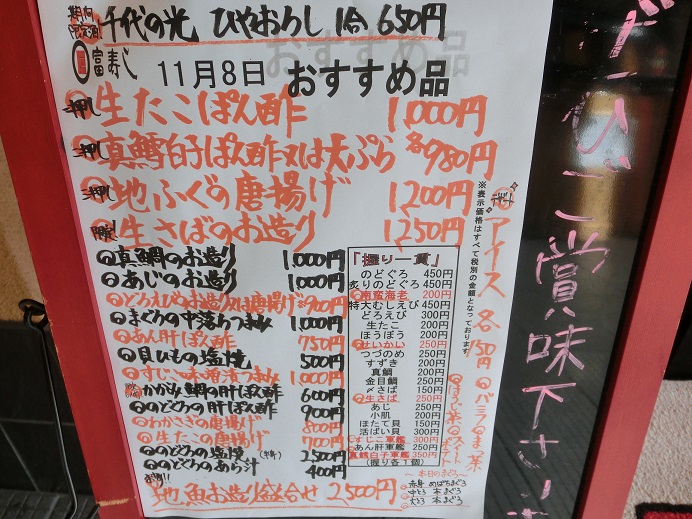 期間限定酒! 千代の光 ひやおろし 1合 650円
富寿し 11月8日 おすすめ品
押し 生たこぽん酢 1,000円
押し 真鱈白子ぽん酢又は天ぷら 各980円
押し 地ふぐの唐揚げ 1,200円
生さばのお造り 1,250円
真鯛のお造り 1,000円
あじのお造り 1,000円
どろえびお造り又は唐揚げ 900円
まぐろの中落ちつまみ 1,000円
あん肝ぽん酢 750円
貝ひもの塩焼 500円
すじこ味噌漬つまみ 1,000円
かがみ鯛の肝ぽん酢 600円
のどぐろの肝ぽん酢 900円
わかさぎの唐揚げ 800円
生たこの唐揚げ 700円
のどぐろの塩焼(半身) 2,500円
のどぐろのあら汁 400円
地魚お造り盛合せ 2,500円
「握り一貫」
のどぐろ 450円
炙りのどぐろ 450円
南蛮海老 200円
特大むしえび 450円
どろえび 300円
生たこ 200円
ほうぼう 200円
ばいかい 250円
つづのめ 250円
すずき 200円
真鯛 200円
金目鯛 250円
〆さば 150円
生さば 250円
あじ 250円
小肌 200円
ほたて貝 150円
活ばい貝 300円
すじこ軍艦 300円
あん肝軍艦 250円
真鱈白子軍艦 350円
(握り各1個)
※表示価格はすべて税別の金額となっております。
デザート
アイス 各150円
バニラ
抹茶
〜本日のまぐろ〜
赤身 めばちまぐろ
中とろ 本まぐろ
大とろ 本まぐろ
ぜひご賞味下さいませ